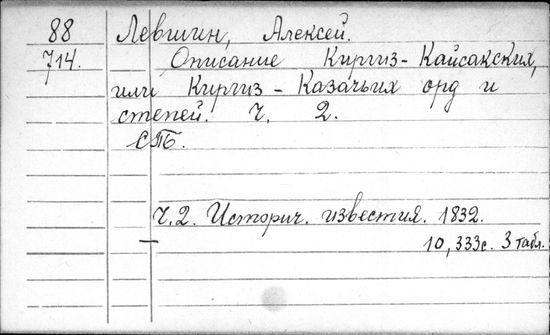 88 Левшин, Алексей.
714. Описание Киргиз-Кайсакских,
или Киргиз-Казачьих орд и
степей. Ч. 2.
СПБ.
Ч.2. Историч. известия. 1832.
10, 333с. 3 табл.